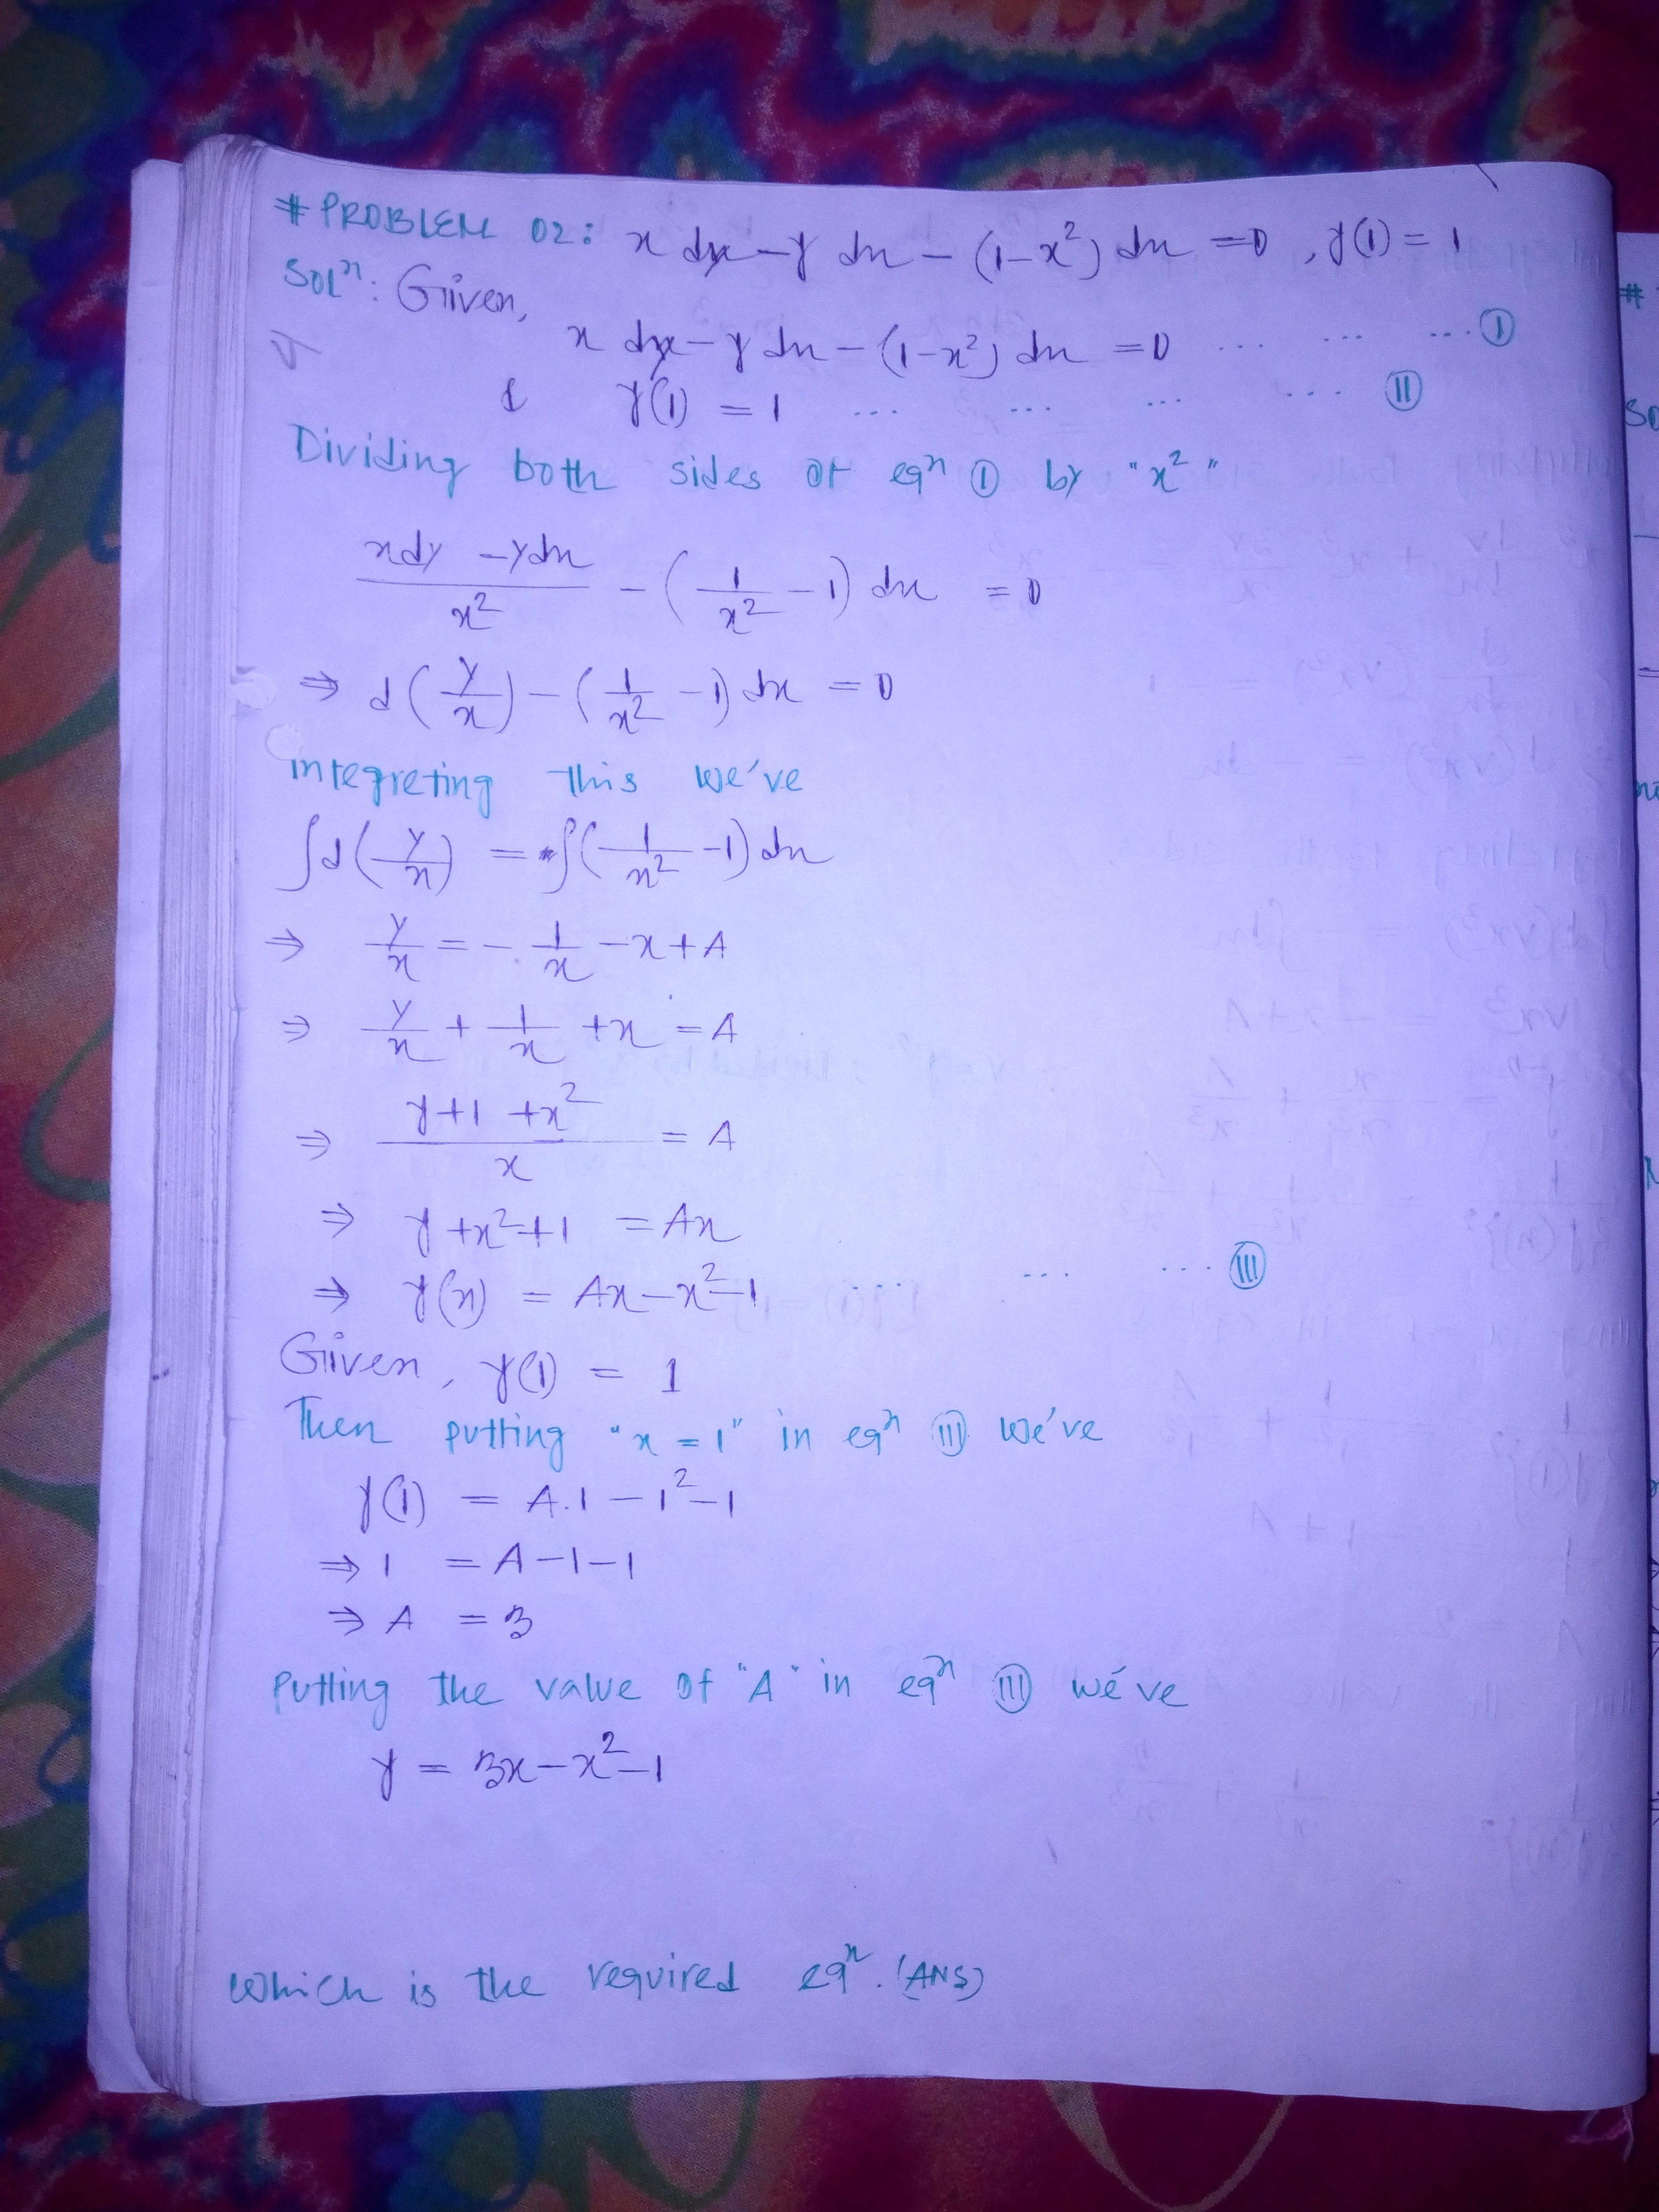 # PROBLEM 02: x dy - y dx - (1-x²) dx = 0 , y(1) = 1
Solⁿ: Given,
x dy - y dx - (1-x²) dx = 0 ... ... ... (I)
& y(1) = 1 ... ... ... ... (II)
Dividing both sides of eqⁿ (I) by "x²"
(xdy - ydx)/x² - (1/x² - 1) dx = 0
⇒ d(y/x) - (1/x² - 1) dx = 0
integreting this we've
∫d(y/x) = ∫(1/x² - 1) dx
⇒ y/x = - 1/x - x + A
⇒ y/x + 1/x + x = A
⇒ (y+1+x²)/x = A
⇒ y+x²+1 = Ax
⇒ y(x) = Ax-x²-1 ... ... ... (III)
Given, y(1) = 1
Then putting "x = 1" in eqⁿ (III) we've
y(1) = A.1 - 1² - 1
⇒ 1 = A-1-1
⇒ A = 3
Putting the value of "A" in eqⁿ (III) we've
y = 3x-x²-1
Which is the required eqⁿ. (ANS)